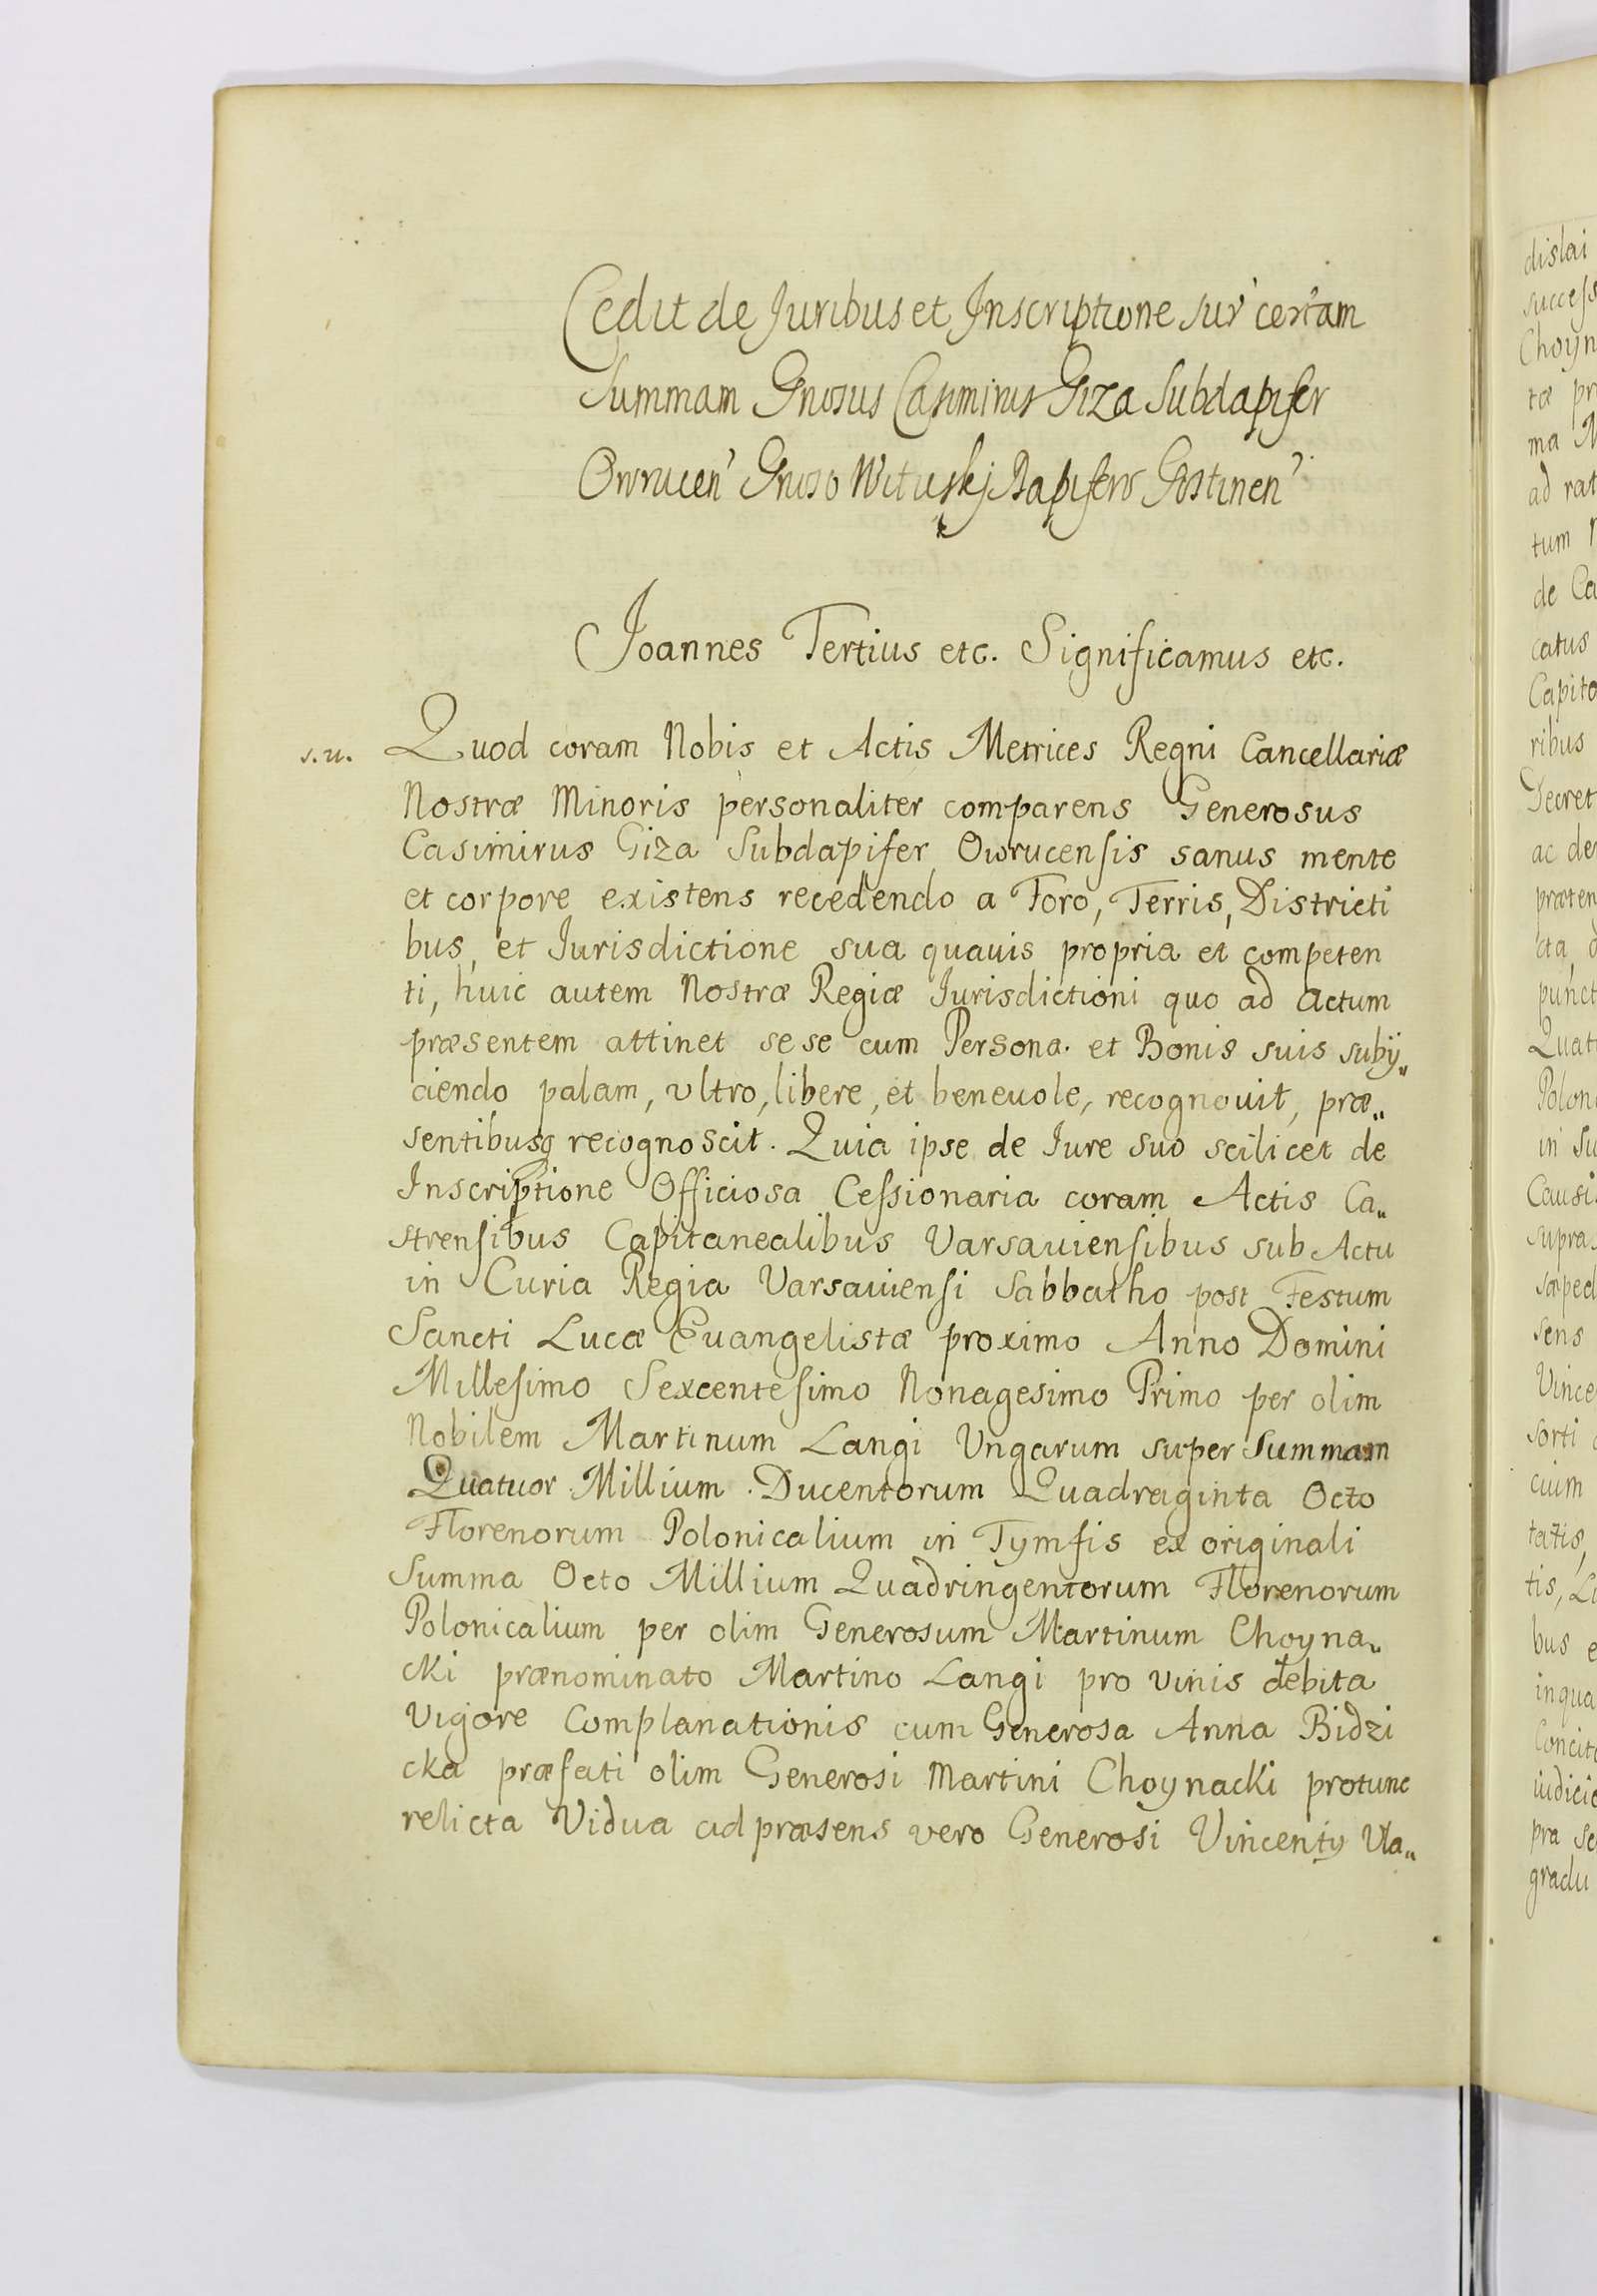 Cedit de Juribus et Inscriptione sur' certam
Summam Gnosus Casimirus Giza Subdapifer
Owrucen' Gnoso Wituskj Dapifero Gostinen'
Joannes Tertius etc. Significamus etc.
s.u. Quod coram Nobis et Actis Metrices Regni Cancellariæ
Nostræ Minoris personaliter comparens Generosus
Casimirus Giza Subdapifer Owrucensis sanus mente
et corpore existens recedendo a Foro, Terris, Districti
bus, et Jurisdictione sua quauis propria et competen
ti, huic autem Nostræ Regiæ Jurisdictioni quo ad Actum
præsentem attinet sese cum Persona et Bonis suis subij„
ciendo palam, vltro, libere, et beneuole, recognouit, præ„
sentibusq recognoscit. Quia ipse de Jure suo scilicet de
Inscriptione Officiosa Cessionaria coram Actis Ca„
strensibus Capitanealibus Varsauiensibus sub Actu
in Curia Regia Varsauiensi Sabbatho post Festum
Sancti Lucæ Euangelistæ proximo Anno Domini
Millesimo Sexcentesimo Nonagesimo Primo per olim
Nobilem Martinum Langi Ungarum super Summam
Quatuor Millium Ducentorum Quadraginta Octo
Florenorum Polonicalium in Tymfis ex originali
Summa Octo Millium Quadringentorum Florenorum
Polonicalium per olim Generosum Martinum Choyna„
cki prænominato Martino Langi pro vinis debita
vigore Complanationis cum Generosa Anna Bidzi
cka præfati olim Generosi Martini Choynacki protunc
relicta Vidua ad præsens vero Generosi Vincentij Vla„
dislai
success
Choyn
tæ pr
ma M
ad rat
tum
de Ca
catus
Capito
ribus
Decret
ac de
præten
cta
punct
Quat
Polon
in Su
Causi
supra
sæped
sens
Vince
sorti
cium
tatis,
tis, Li
bus e
inqua
Concit
iudicio
pra se
gradu